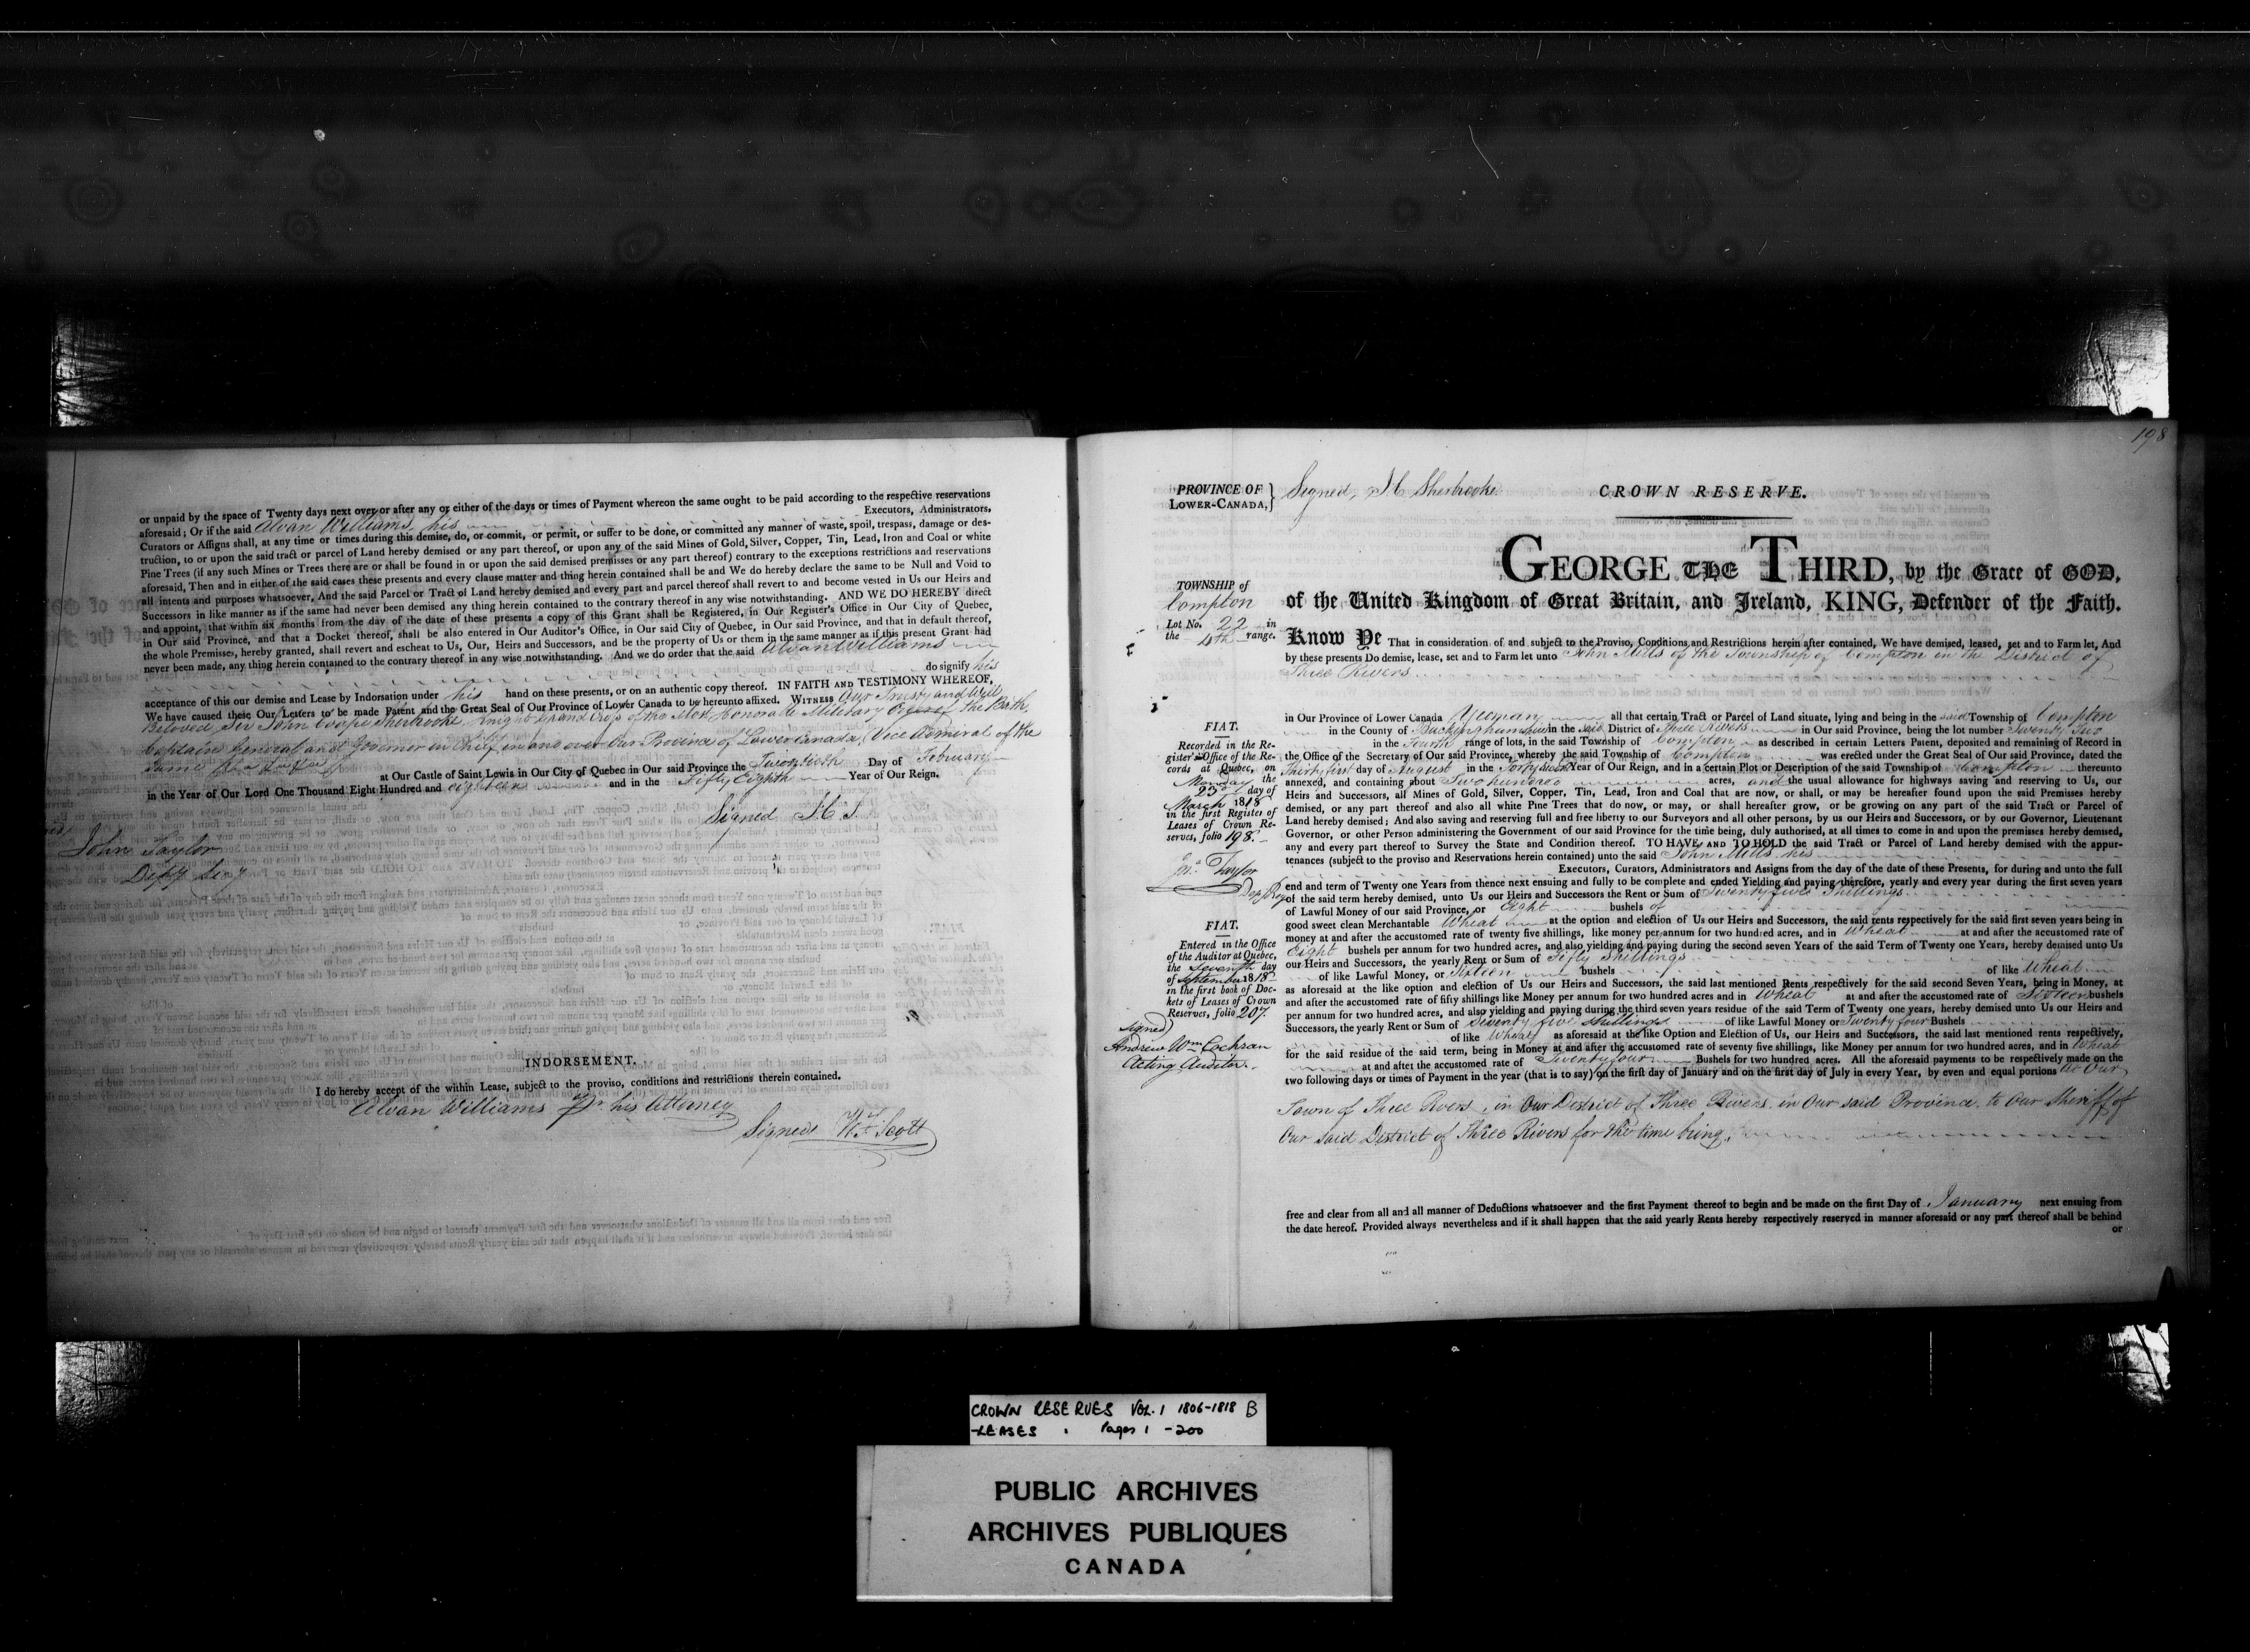 or unpaid by the space of Twenty days next over or after any or either of the days or times of Payment whereon the same ought to be paid according to the respective reservations
aforesaid; Or if the said Alvan Williams his Executors, Administrators,
Curators or Assigns shall, at any time or times during this demise, do, or commit, or permit, or suffer to be done, or committed any manner of waste, spoil, trespass, damage or des-
truction, to or upon the said tract or parcel of Land hereby demised or any part thereof, or upon any of the said Mines of Gold, Silver, Copper, Tin, Lead, Iron and Coal or white
Pine Trees (if any such Mines or Trees there are or shall be found in or upon the said demised premises or any part thereof) contrary to the exceptions restrictions and reservations
aforesaid, Then and in either of the said cases these presents and every clause matter and thing herein contained shall be and We do hereby declare the same to be Null and Void to
all intents and purposes whatsoever, And the said Parcel or Tract of Land hereby demised and every part and parcel thereof shall revert to and become vested in Us our Heirs and
Successors in like manner as if the same had never been demised any thing herein contained to the contrary thereof in any wise notwithstanding. AND WE DO HEREBY direct
and appoint, that within six months from the day of the date of these presents a copy of this Grant shall be Registered, in Our Register's Office in Our City of Quebec,
in Our said Province, and that a Docket thereof, shall be also entered in Our Auditor's Office, in Our said City of Quebec, in Our said Province, and that in default thereof,
the whole Premises, hereby granted, shall revert and escheat to Us, Our, Heirs and Successors, and be the property of Us or them in the same manner as if this present Grant had
never been made, any thing herein contained to the contrary thereof in any wise notwithstanding. And we do order that the said Alvan Williams
do signify his
acceptance of this our demise and Lease by Indorsation under his hand on these presents, or on an authentic copy thereof. IN FAITH AND TESTIMONY WHEREOF,
We have caused these Our Letters to be made Patent and the Great Seal of Our Province of Lower Canada to be hereunto affixed. WITNESS Our Trusty and Well
Beloved Sir John Coape Sherbrooke Knight Grand Cross of the Most Honorable Military Order of the Bath,
Captain General and Governor in Chief in and over Our Province of Lower Canada, Vice Admiral of the
Same
at Our Castle of Saint Lewis in Our City of Quebec in Our said Province the Day of February
in the Year of Our Lord One Thousand Eight Hundred and eighteen and in the Fifty Eighth Year of Our Reign.
Signed J. C. S.
John Taylor
Depy Secy
INDORSEMENT.
I do hereby accept of the within Lease, subject to the proviso, conditions and restrictions therein contained.
Alvan Williams pr his Attorney
Signed W. F. Scott
198
PROVINCE OF LOWER-CANADA,} Signed, J. C. Sherbrooke
CROWN RESERVE.
GEORGE THE THIRD, by the Grace of GOD,
of the United Kingdom of Great Britain, and Ireland, KING, Defender of the Faith.
TOWNSHIP of
Compton
Lot No. 22 in
the 4th range.
Know Ye That in consideration of and subject to the Proviso, Conditions and Restrictions herein after contained, We have demised, leased, set and to Farm let, And
by these presents Do demise, lease, set and to Farm let unto John Mills of the Township of Compton in the District of
Three Rivers
in Our Province of Lower Canada Yeoman all that certain Tract or Parcel of Land situate, lying and being in the said Township of Compton
in the County of Buckinghamshire in the said District of Three Rivers in Our said Province, being the lot number Twenty Two
in the Fourth range of lots, in the said Township of Compton as described in certain Letters Patent, deposited and remaining of Record in
the Office of the Secretary of Our said Province, whereby the said Township of Compton was erected under the Great Seal of Our said Province, dated the
Thirty first day of August in the Forty Second Year of Our Reign, and in a certain Plot or Description of the said Township of Compton thereunto
annexed, and containing about Two hundred acres, and the usual allowance for highways saving and reserving to Us, our
Heirs and Successors, all Mines of Gold, Silver, Copper, Tin, Lead, Iron and Coal that are now, or shall, or may be hereafter found upon the said Premises hereby
demised, or any part thereof and also all white Pine Trees that do now, or may, or shall hereafter grow, or be growing on any part of the said Tract or Parcel of
Land hereby demised; And also saving and reserving full and free liberty to our Surveyors and all other persons, by us our Heirs and Successors, or by our Governor, Lieutenant
Governor, or other Person administering the Government of our said Province for the time being, duly authorised, at all times to come in and upon the premises hereby demised,
any and every part thereof to Survey the State and Condition thereof. TO HAVE AND TO HOLD the said Tract or Parcel of Land hereby demised with the appur-
tenances (subject to the proviso and Reservations herein contained) unto the said John Mills his
Executors, Curators, Administrators and Assigns from the day of the date of these Presents, for during and unto the full
end and term of Twenty one Years from thence next ensuing and fully to be complete and ended Yielding and paying therefore, yearly and every year during the first seven years
of the said term hereby demised, unto Us our Heirs and Successors the Rent or Sum of Twenty five Shillings
of Lawful Money of our said Province, or Eight bushels of
good sweet clean Merchantable Wheat at the option and election of Us our Heirs and Successors, the said rents respectively for the said first seven years being in
money at and after the accustomed rate of twenty five shillings, like money per annum for two hundred acres, and in Wheat at and after the accustomed rate of
Eight bushels per annum for two hundred acres, and also yielding and paying during the second seven Years of the said Term of Twenty one Years, hereby demised unto Us
our Heirs and Successors, the yearly Rent or Sum of Fifty Shillings
of like Lawful Money, or Sixteen bushels of like Wheat
as aforesaid at the like option and election of Us our Heirs and Successors, the said last mentioned Rents respectively for the said second Seven Years, being in Money, at
and after the accustomed rate of fifty shillings like Money per annum for two hundred acres and in Wheat at and after the accustomed rate of Sixteen bushels
per annum for two hundred acres, and also yielding and paying during the third seven years residue of the said Term of Twenty one years, hereby demised unto Us our Heirs and
Successors, the yearly Rent or Sum of Seventy five Shillings of like Lawful Money or Twenty four Bushels
of like Wheat as aforesaid at the like Option and Election of Us, our Heirs and Successors, the said last mentioned rents respectively,
for the said residue of the said term, being in Money at and after the accustomed rate of seventy five shillings, like Money per annum for two hundred acres, and in Wheat
at and after the accustomed rate of Twenty four Bushels for two hundred acres. All the aforesaid payments to be respectively made on the
two following days or times of Payment in the year (that is to say) on the first day of January and on the first day of July in every Year, by even and equal portions at Our
Town of Three Rivers, in Our District of Three Rivers in Our said Province to Our Sheriff of
Our said District of Three Rivers for the time being,
free and clear from all and all manner of Deductions whatsoever and the first Payment thereof to begin and be made on the first Day of January next ensuing from
the date hereof. Provided always nevertheless and if it shall happen that the said yearly Rents hereby respectively reserved in manner aforesaid or any part thereof shall be behind
or
FIAT.
Recorded in the Re-
gister's Office of the Re-
cords at Quebec, on
Monday the
23d day of
March 1818
in the first Register of
Leases of Crown Re-
serves, folio 198.
Jn. Taylor
Dep. Reg
FIAT.
Entered in the Office
of the Auditor at Quebec,
the Seventh day
of September 1818
in the first book of Doc-
kets of Leases of Crown
Reserves, folio 207.
Signed
Andrew Wm Cochran
Acting Auditor.
CROWN RESERVES VOL. 1 1806-1818 B
-LEASES Pages 1 - 200
PUBLIC ARCHIVES
ARCHIVES PUBLIQUES
CANADA